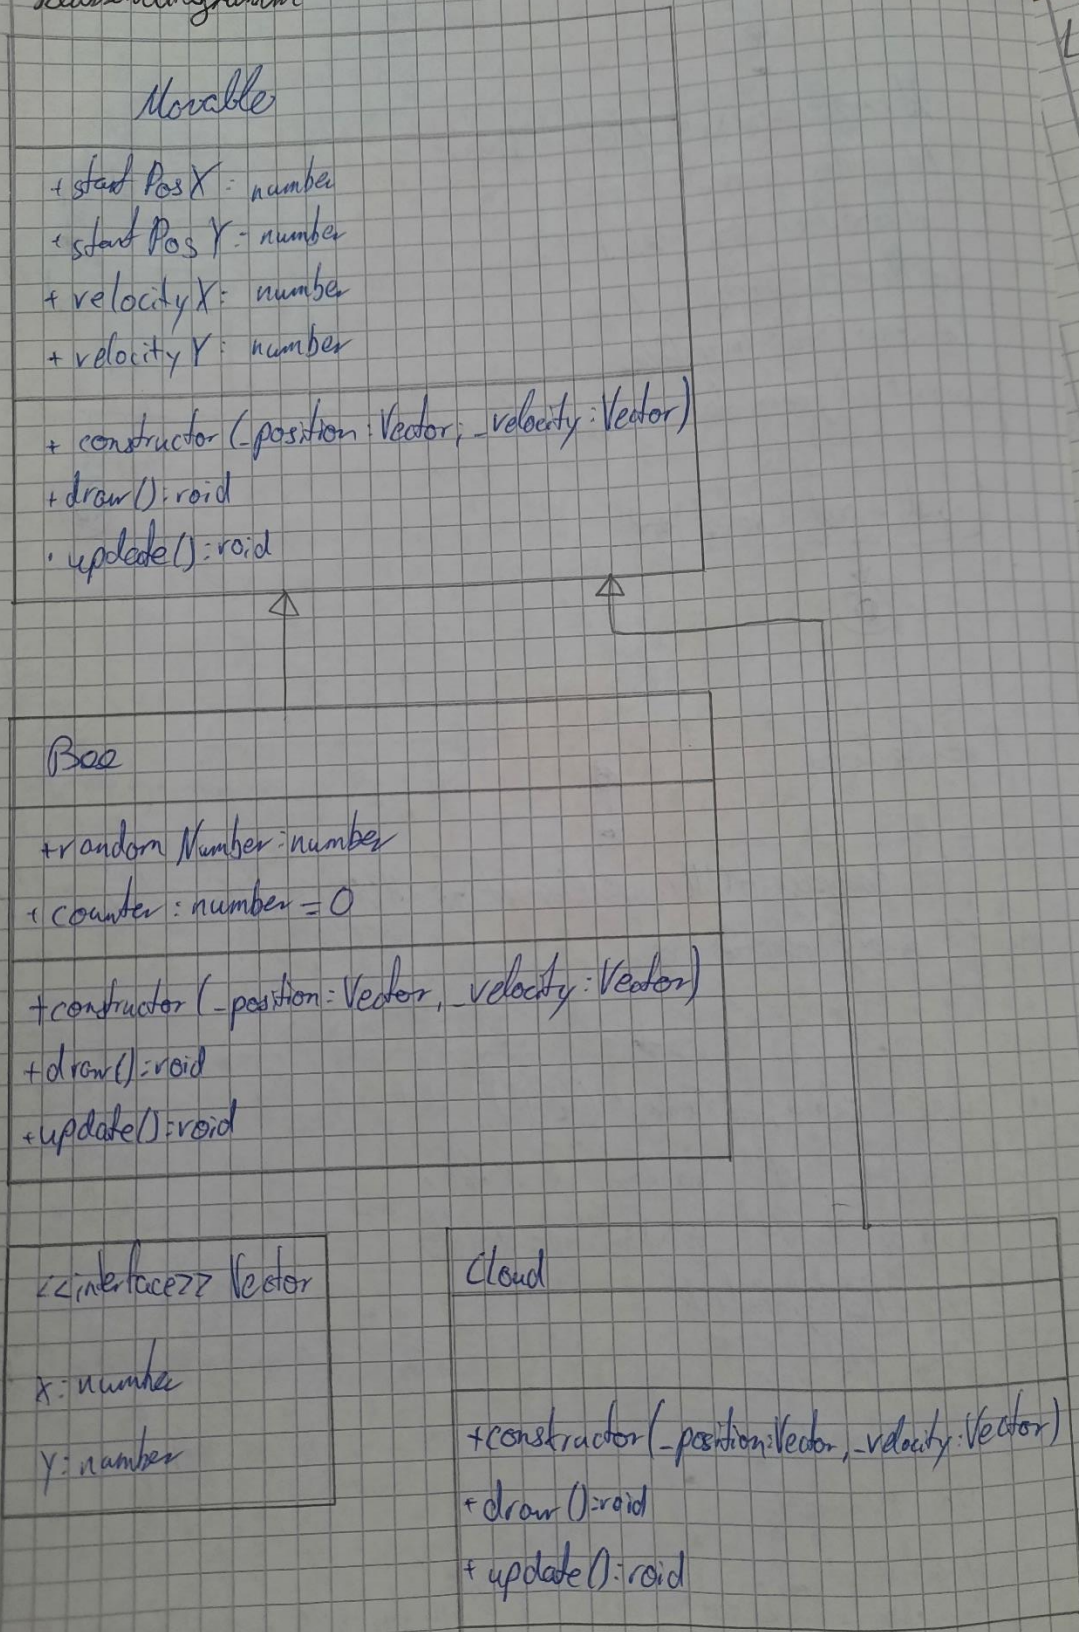 Klassendiagramm
Movable
+ startPosX: number
+ startPosY: number
+ velocityX: number
+ velocityY: number
+ constructor(_position:Vector, _velocity:Vector)
+draw():void
· update():void
Bee
+random Number:number
+ counter: number=0
+constructor(_position:Vector, _velocity:Vector)
+draw():void
+update():void
<<interface>> Vector
X:number
Y:number
Cloud
+constructor(_position:Vector,_velocity:Vector)
+ draw():void
+ update():void